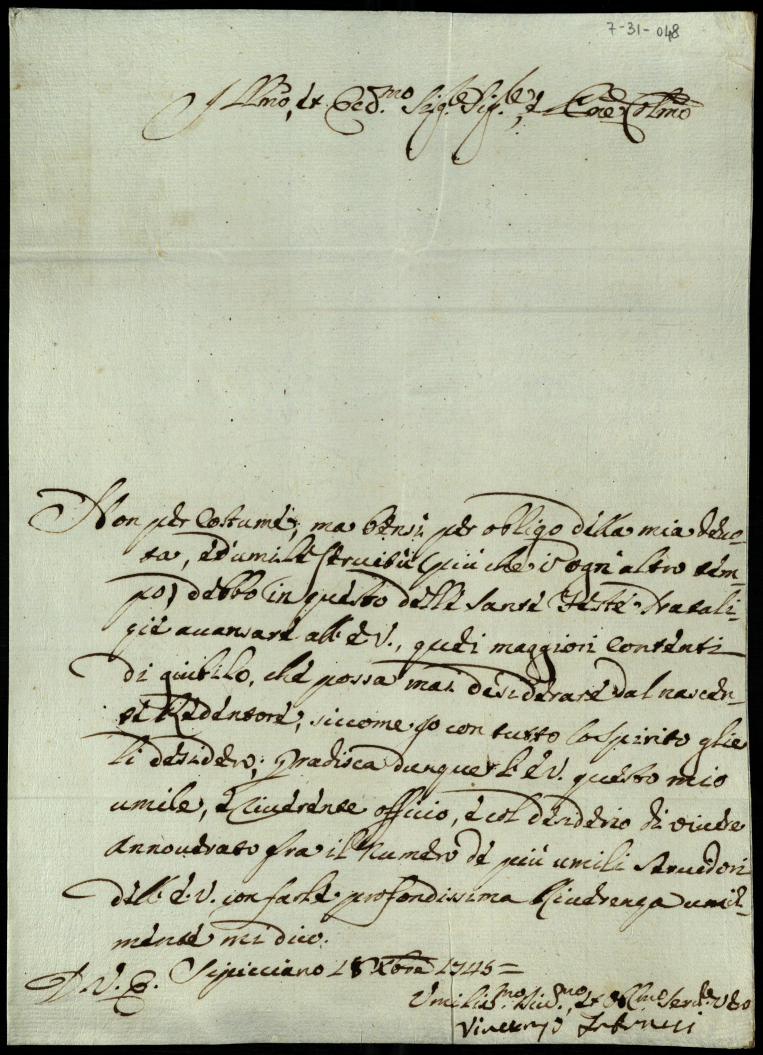 7-31-048
Illmo, et Ecc.mo Sig.re Sig.re, e Pne Colmo
Non per Costume, ma bensi per obligo della mia devo-
ta, ed'umile servitù (più che i ogn'altro tem-
po) debbo in questo delle Sante Feste Natali-
zie avansare all'E.V., quei maggiori Contenti
di giubilo, che possa mai desiderare dal nascen-
te Redentore, siccome Io con tutto lo Spirito glie
li desidero; Gradisca dunque L'E.V. questo mio
umile, e Riverente officio, e col desiderio di vivere
Annoverato fra il Numero de più umili Servidori
dell'E.V. con farle profondissima Riverenza umil-
mente mi dico.
D.V.E. Sipicciano 18 Xbre 1745=
Umiliss.mo Div.mo, et Obl.mo Serv.re Vero
Vincenzo